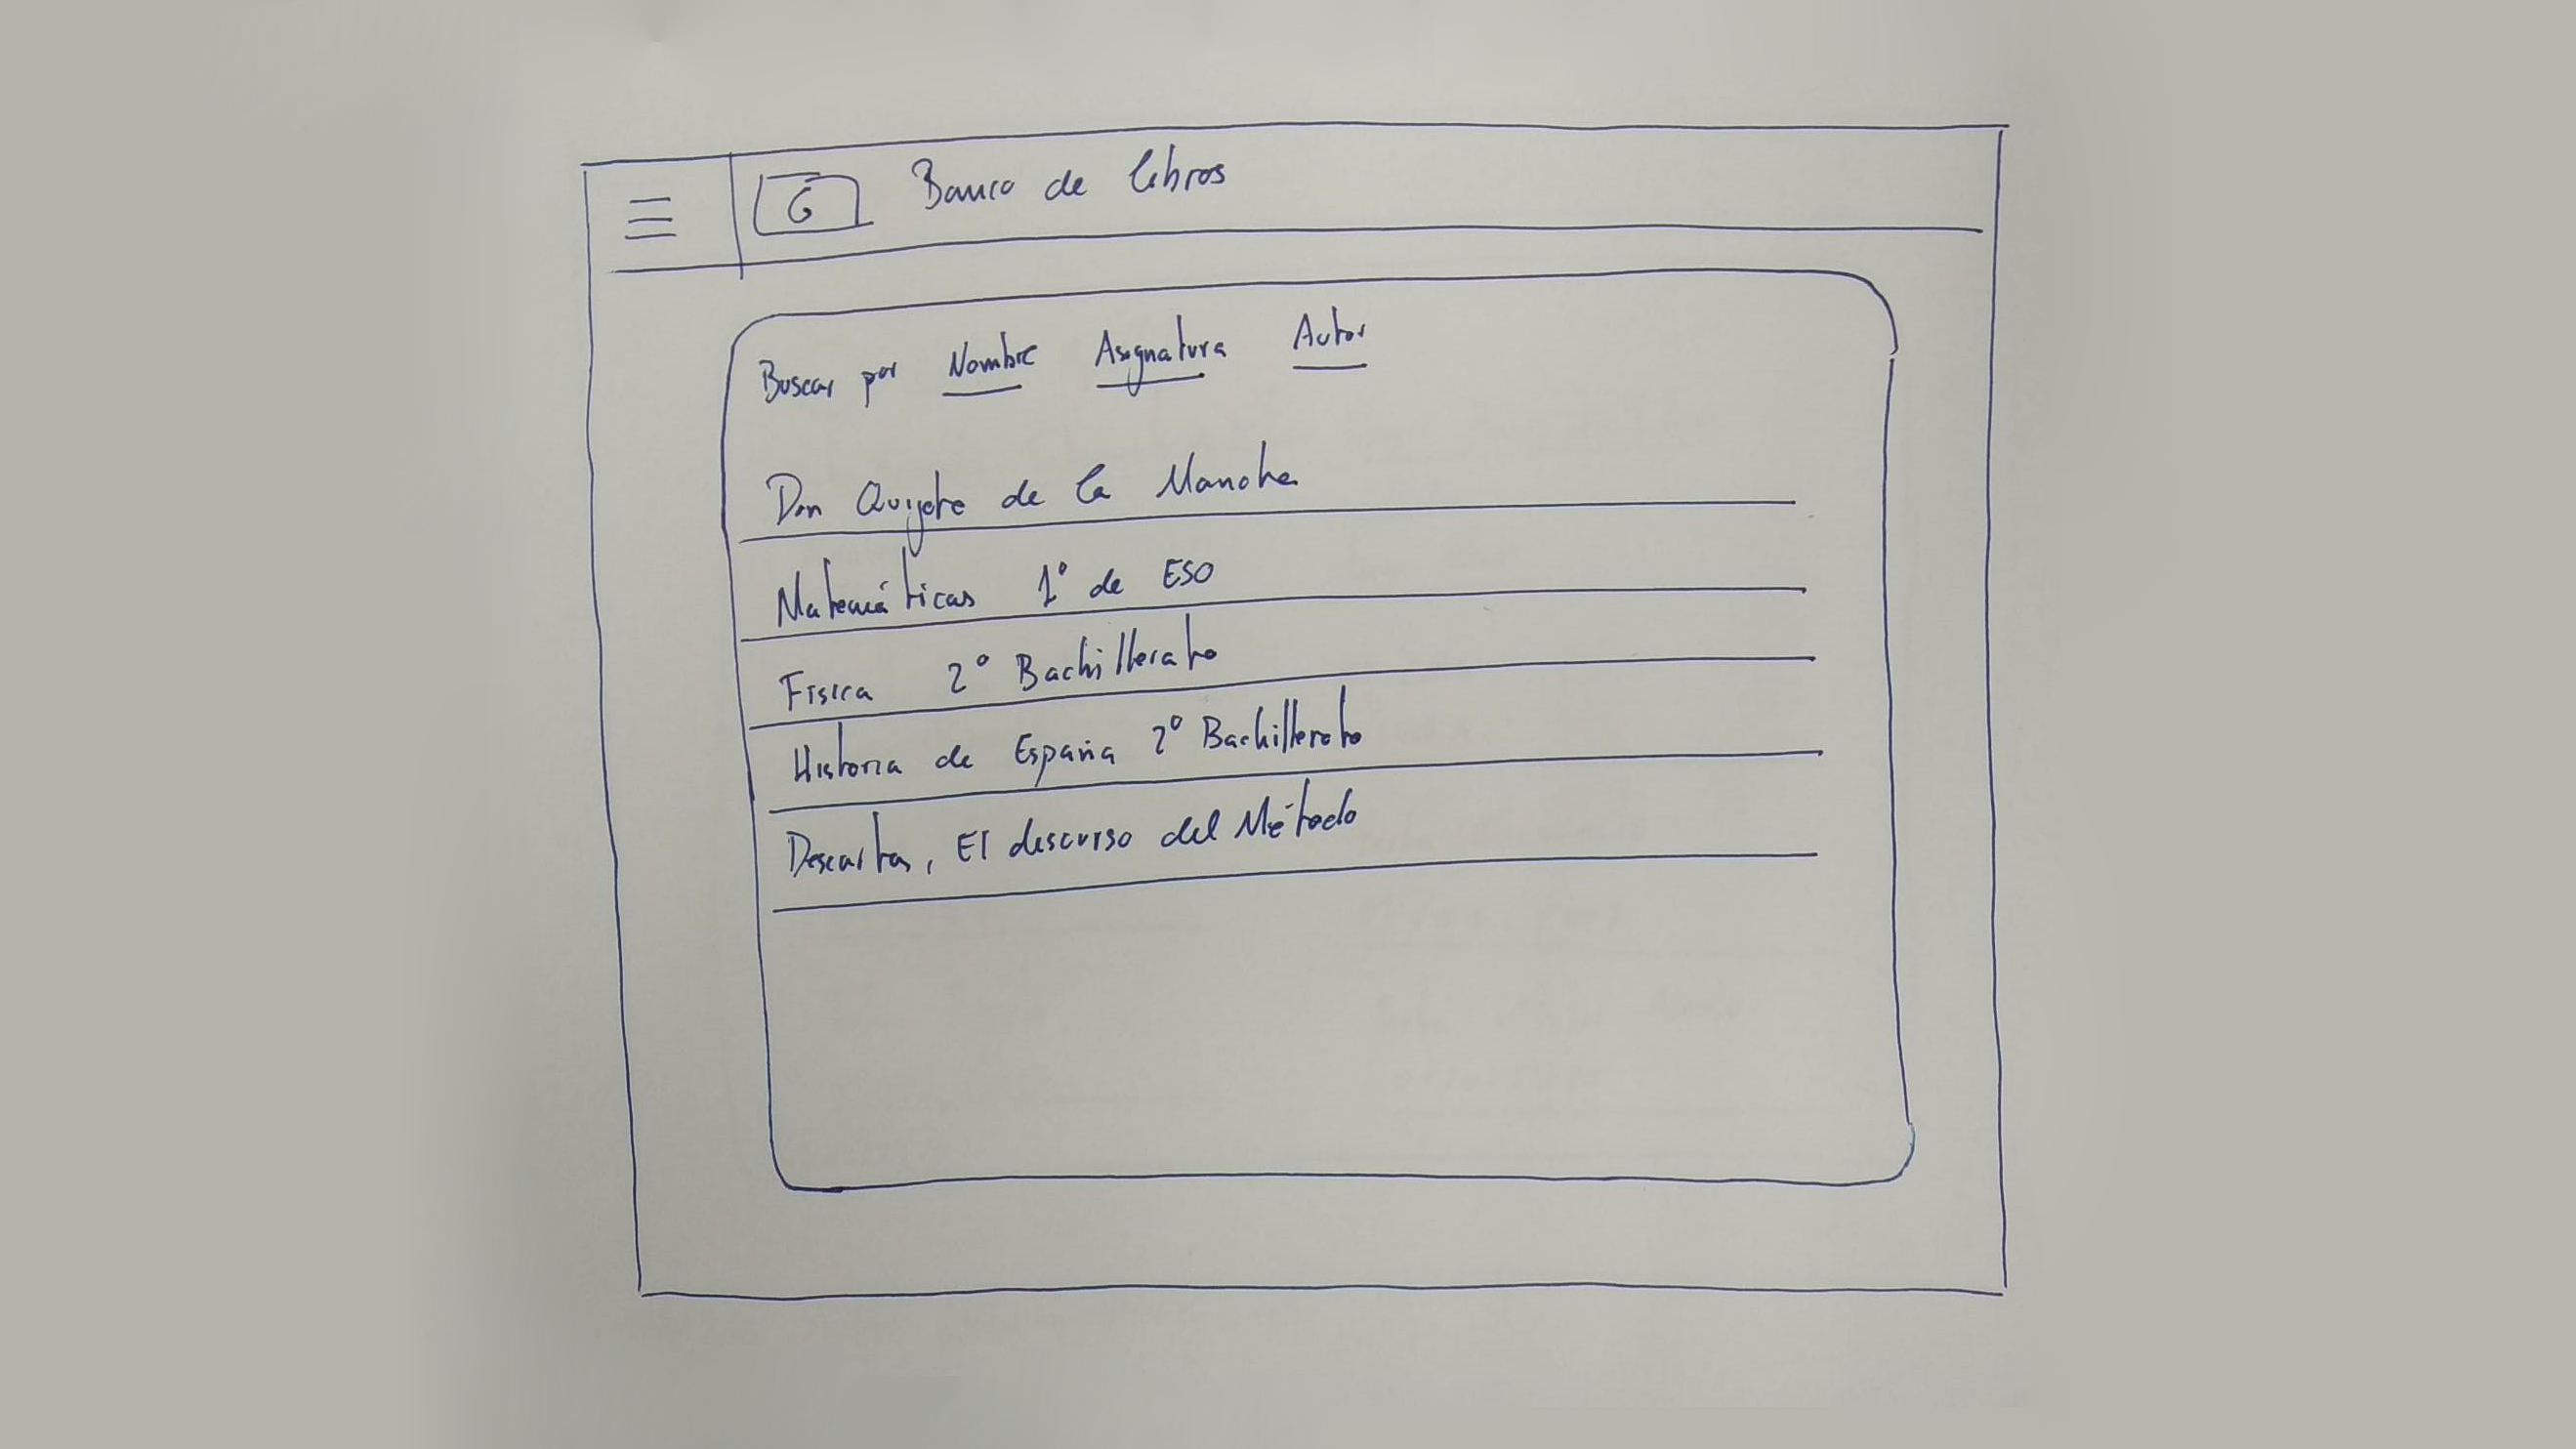 G Banco de libros
Buscar por Nombre Asignatura Autor
Don Quijote de la Mancha
Matemáticas 1º de ESO
Física 2º Bachillerato
Historia de España 2º Bachillerato
Descartes, El discurso del Método